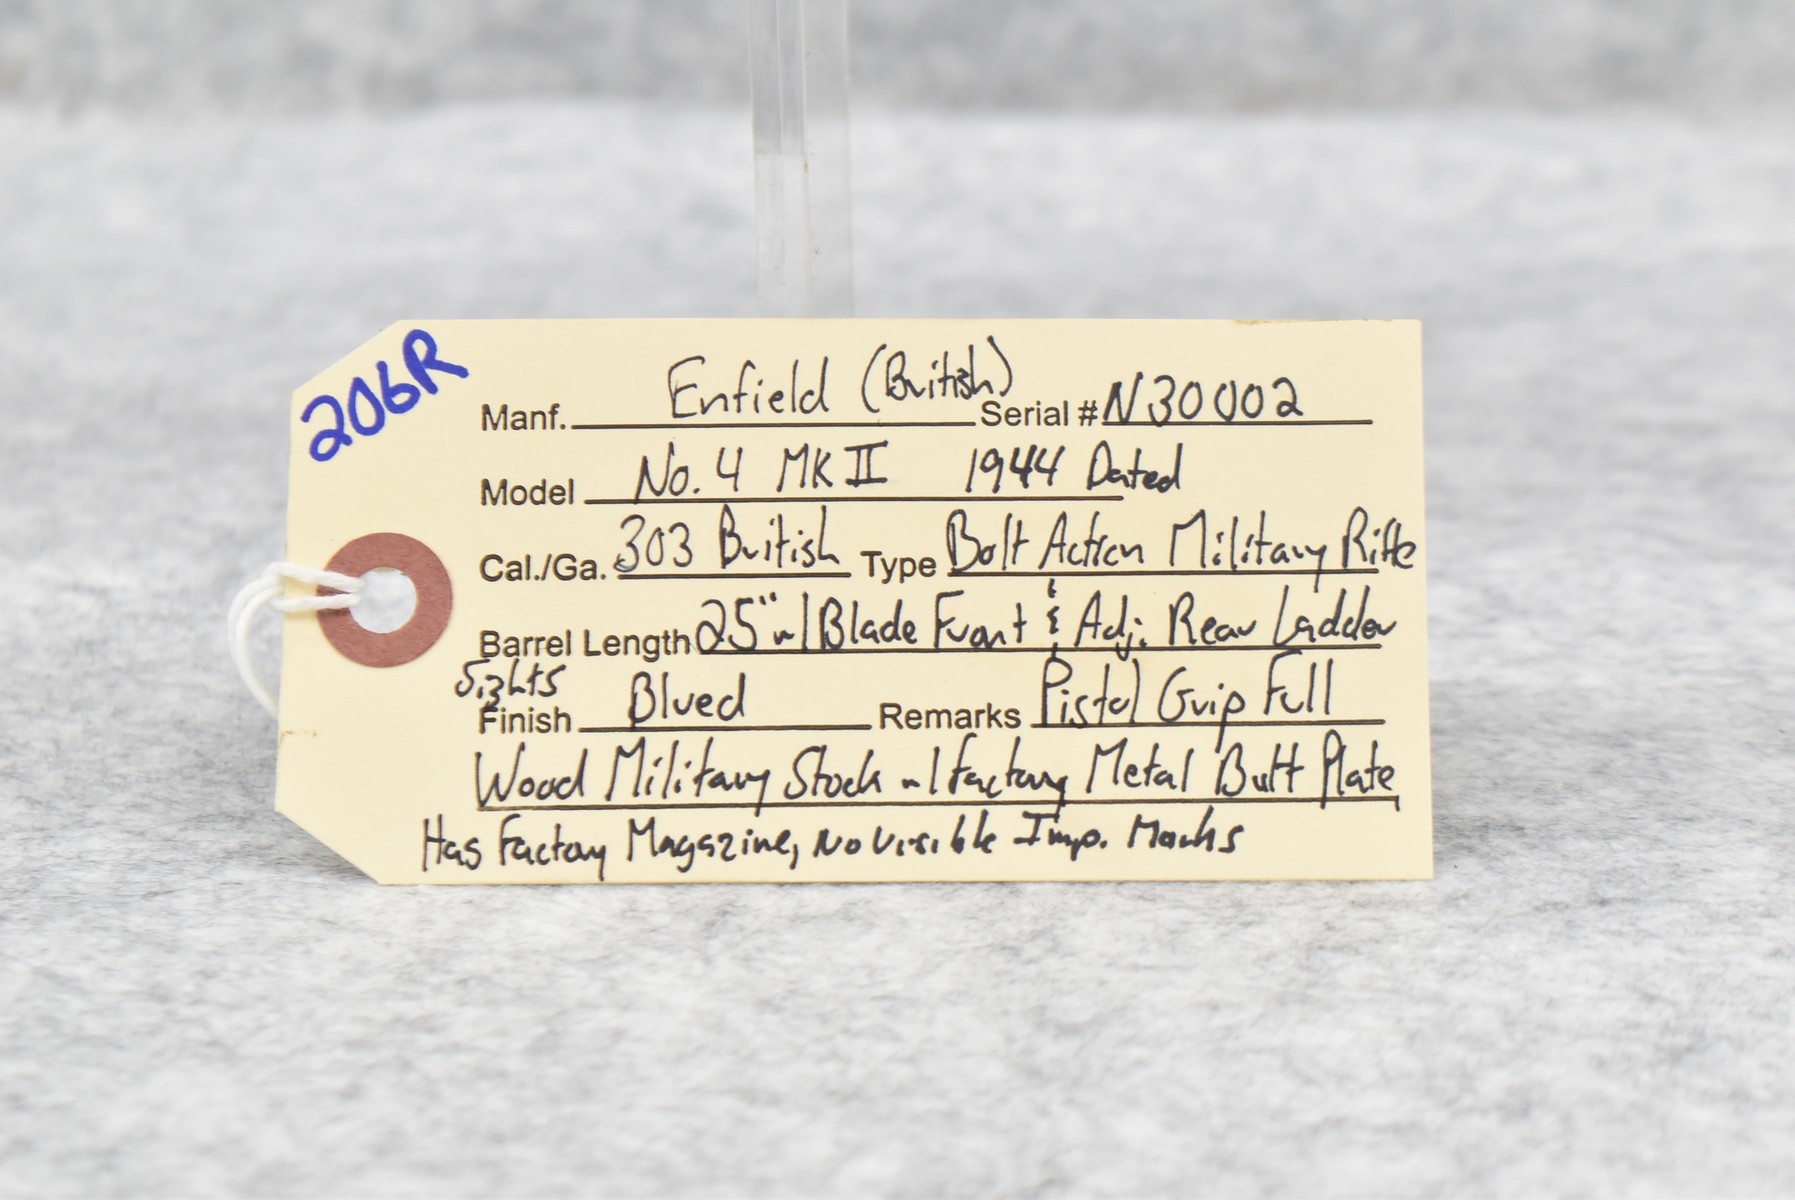 206R
Manf. Enfield (British) Serial # N30002
Model No. 4 MK II 1944 Dated
Cal./Ga. 303 British Type Bolt Action Military Rifle
Barrel Length 25" w/ Blade Front & Adj. Rear Ladder
Sights
Finish Blued Remarks Pistol Grip Full
Wood Military Stock w/ factory Metal Butt Plate,
Has Factory Magazine, No Visible Imp. Marks